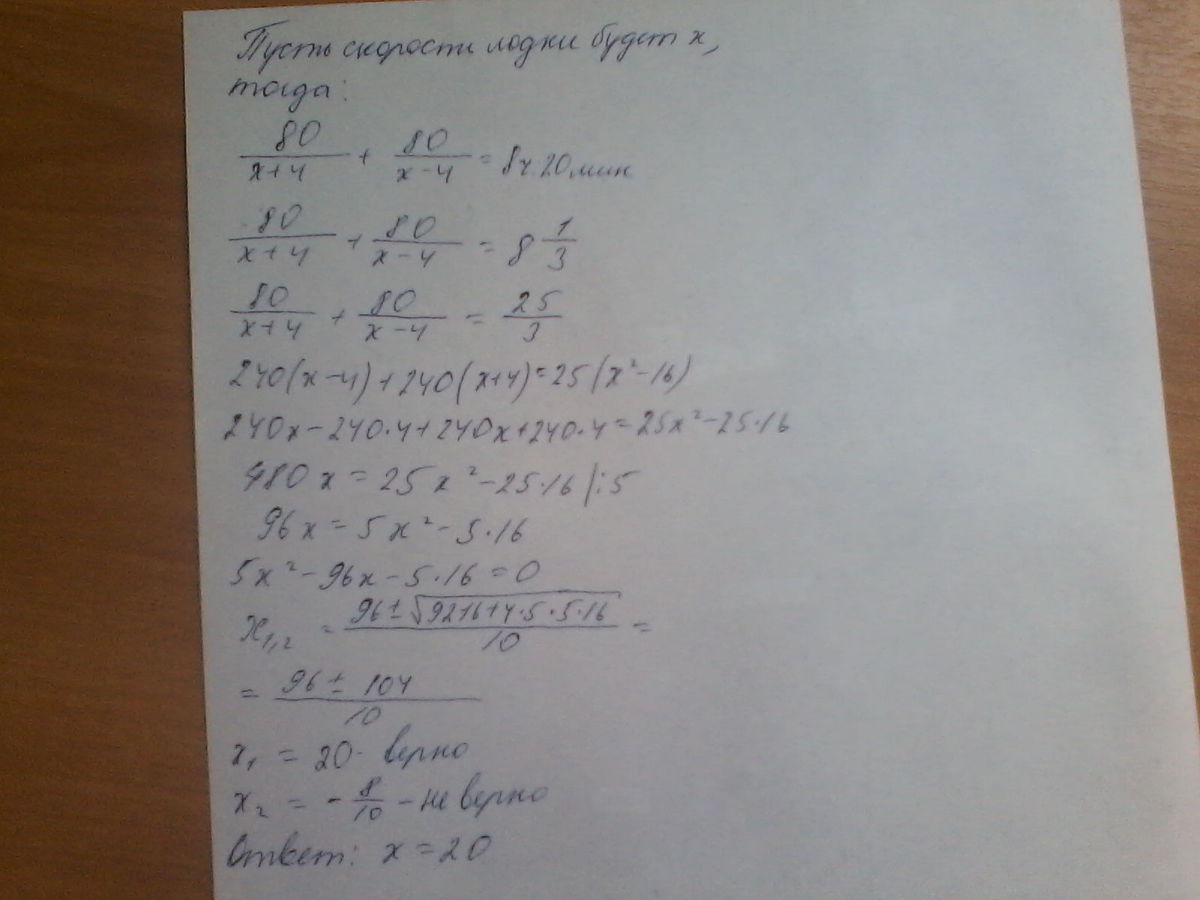 Пусть скорость лодки будет x,
тогда:
80/(x+4) + 80/(x-4) = 8ч.20мин
80/(x+4) + 80/(x-4) = 8 1/3
80/(x+4) + 80/(x-4) = 25/3
240(x-4)+240(x+4)=25(x²-16)
240x-240·4+240x+240·4=25x²-25·16
480x=25x²-25·16 |:5
96x=5x²-5·16
5x²-96x-5·16=0
x₁,₂ = (96±√(9216+4·5·5·16))/10 =
= (96±104)/10
x₁ = 20- верно
x₂ = -8/10 - не верно
Ответ: x=20